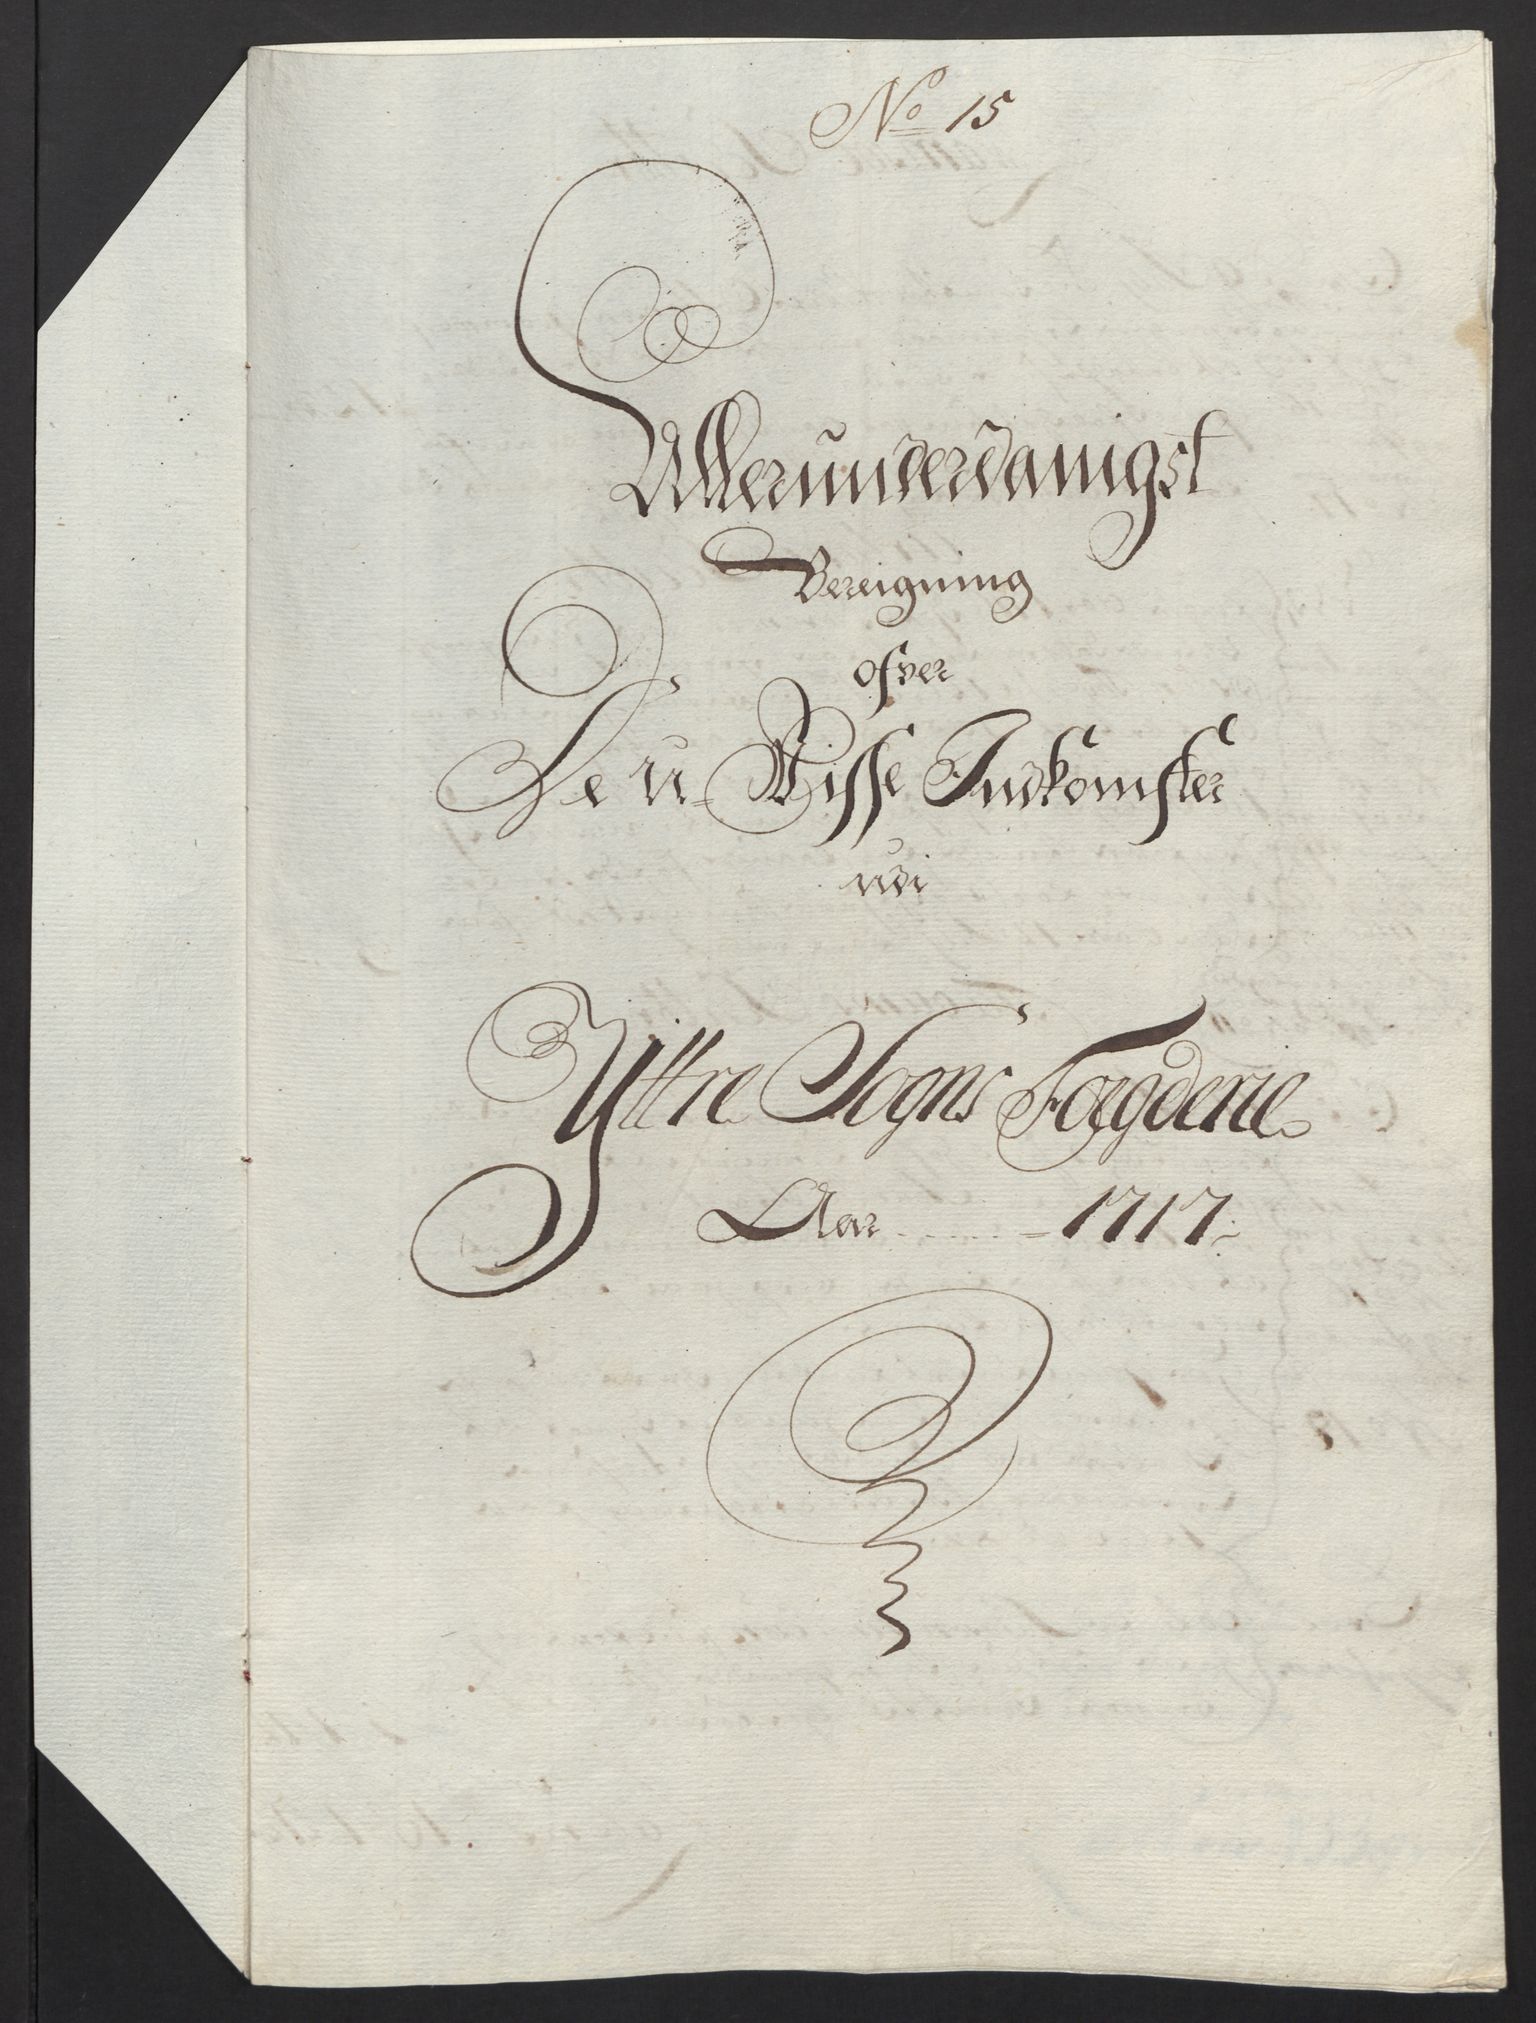 No 15
Allerunderdanigst
Bereigning
ofver
De u-Visse Indkomster
udi
Yttre Sogns Fogderie
Aar ..... 1717